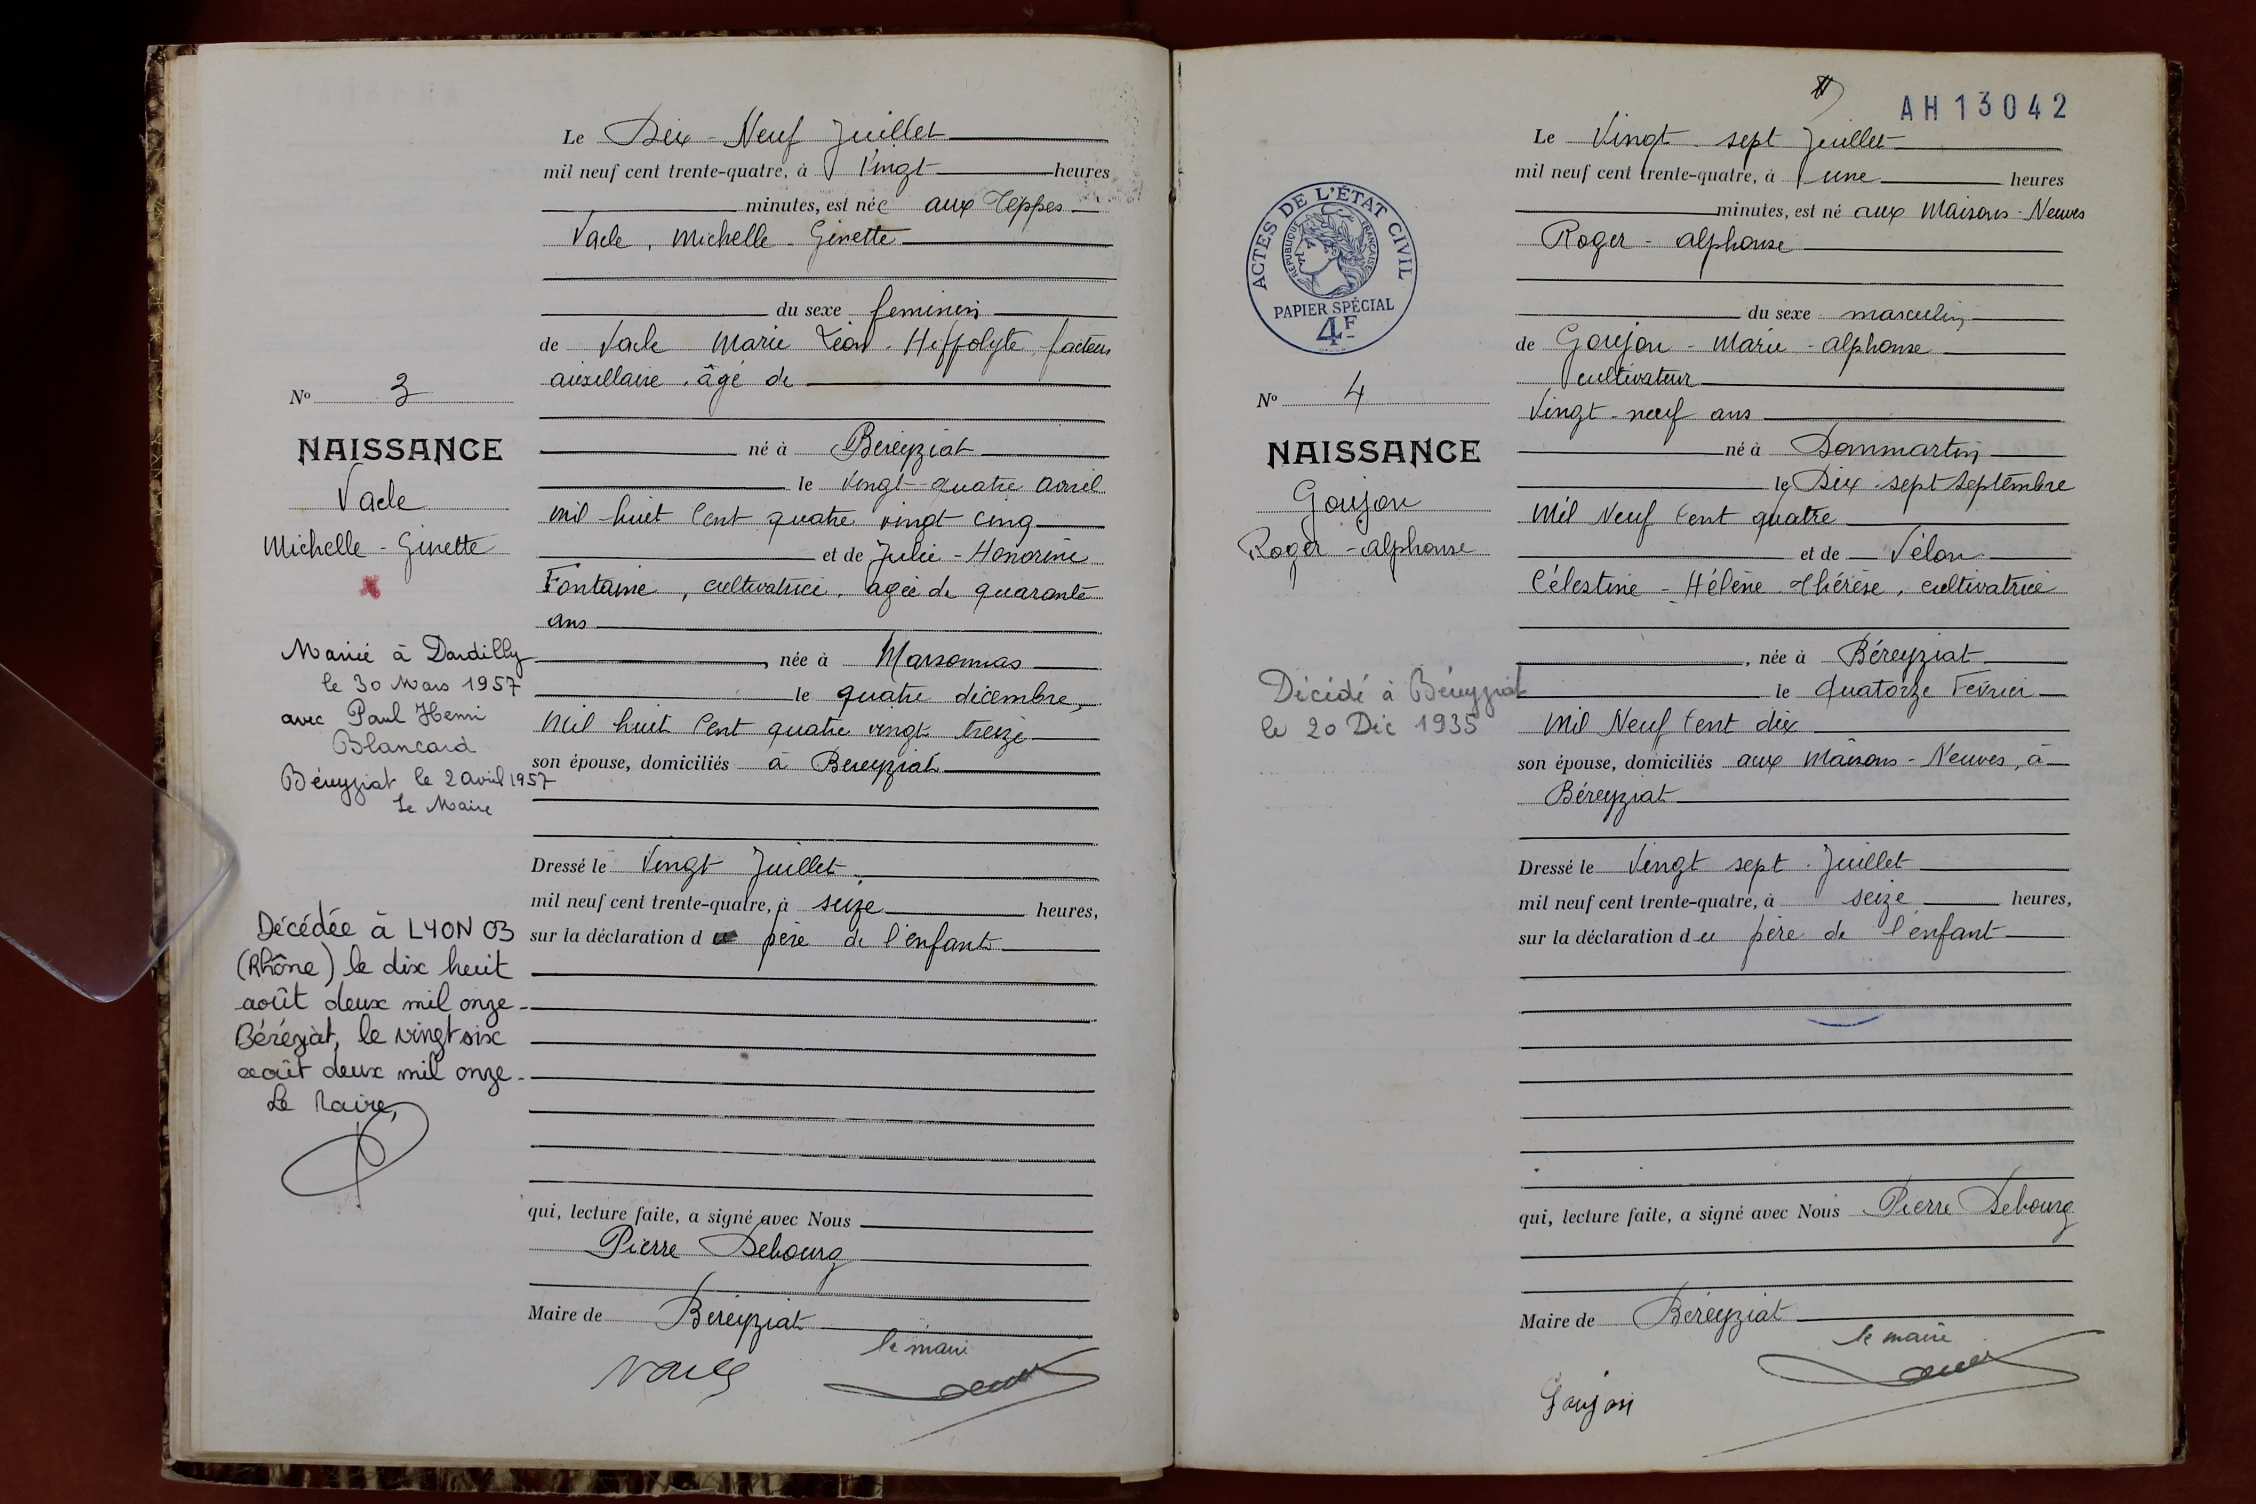 Le Dix-Neuf Juillet
mil neuf cent trente-quatre, à Vingt heures
minutes, est née aux Teppes
Vacle, Michelle-Ginette
du sexe feminin
de Vacle Marie Léon-Hippolyte, facteur
auxillaire, âgé de
né à Béréyziat
le vingt-quatre avril
mil huit Cent quatre vingt cinq
et de Julie-Honorine
Fontaine, cultivatrice, agée de quarante
ans
, née à Marsonnas
le quatre décembre,
Mil huit Cent quatre vingt treize
son épouse, domiciliés à Bereyziat
Dressé le Vingt Juillet
mil neuf cent trente-quatre, à seize heures,
sur la déclaration d père de l'enfant
qui, lecture faite, a signé avec Nous
Pierre Debourg
Maire de Béréyziat
le maire
Vacle
No 3
NAISSANCE
Vacle
Michelle-Ginette
Mariée à Dardilly
le 30 Mars 1957
avec Paul Henri
Blancard
Béreyziat le 2 avril 1957
Le Maire
Décédée à LYON 03
(Rhône) le dix huit
août deux mil onze-
Béréziat, le vingt six
août deux mil onze-
Le Maire,
AH 13042
Le Vingt-sept Juillet
mil neuf cent trente-quatre, à une heures
minutes, est né aux Maisons-Neuves
Roger-alphonse
du sexe masculin
de Goujon-Marie-alphonse
cultivateur
Vingt-neuf ans
né à Dommartin
le Dix-sept Septembre
Mil Neuf Cent quatre
et de Vélon
Célestine-Hélène-Thérèse, cultivatrice
, née à Béreyziat
le Quatorze Février
Mil Neuf Cent dix
son épouse, domiciliés aux Maisons-Neuves, à
Béreyziat
Dressé le Vingt sept Juillet
mil neuf cent trente-quatre, à seize heures,
sur la déclaration du père de l'enfant
qui, lecture faite, a signé avec Nous Pierre Debourg
Maire de Béréyziat
le maire
Goujon
ACTES DE L'ÉTAT CIVIL
RÉPUBLIQUE FRANÇAISE
PAPIER SPÉCIAL
4F
No 4
NAISSANCE
Goujon
Roger-alphonse
Décédé à Béreyziat
le 20 Déc 1935